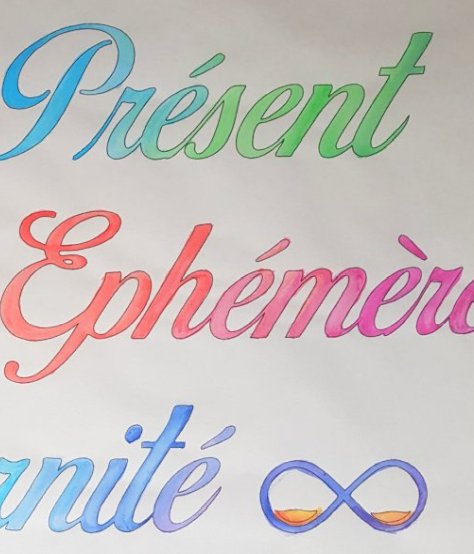 Présent
Ephémère
nité